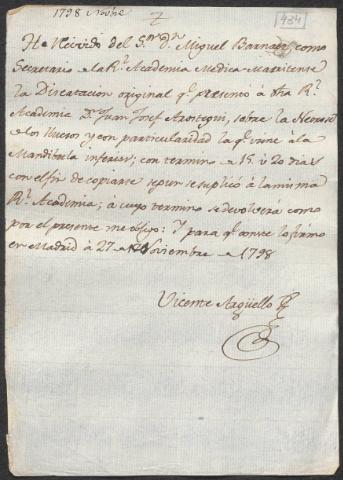 1798 Novbre
434
He recivido del Sor. Dn. Miguel Barnades, como
Secretario de la Rl. Academia Medica Matritense
la Disertacion original qe. presentó á dha Rl.
Academia Dn. Juan Josef Arostegui, sobre la Necrose
de los Huesos y con particularidad la qe. viene á la
Mandibula inferior; con termino de 15. ó 20 dias
con el fin de copiarse segun se suplicó á la misma
Rl. Academia; á cuyo termino se devolverá como
por el presente me obligo: Y para qe. conste lo firmo
en Madrid á 27 de Noviembre de 1798
Vicente Argüello